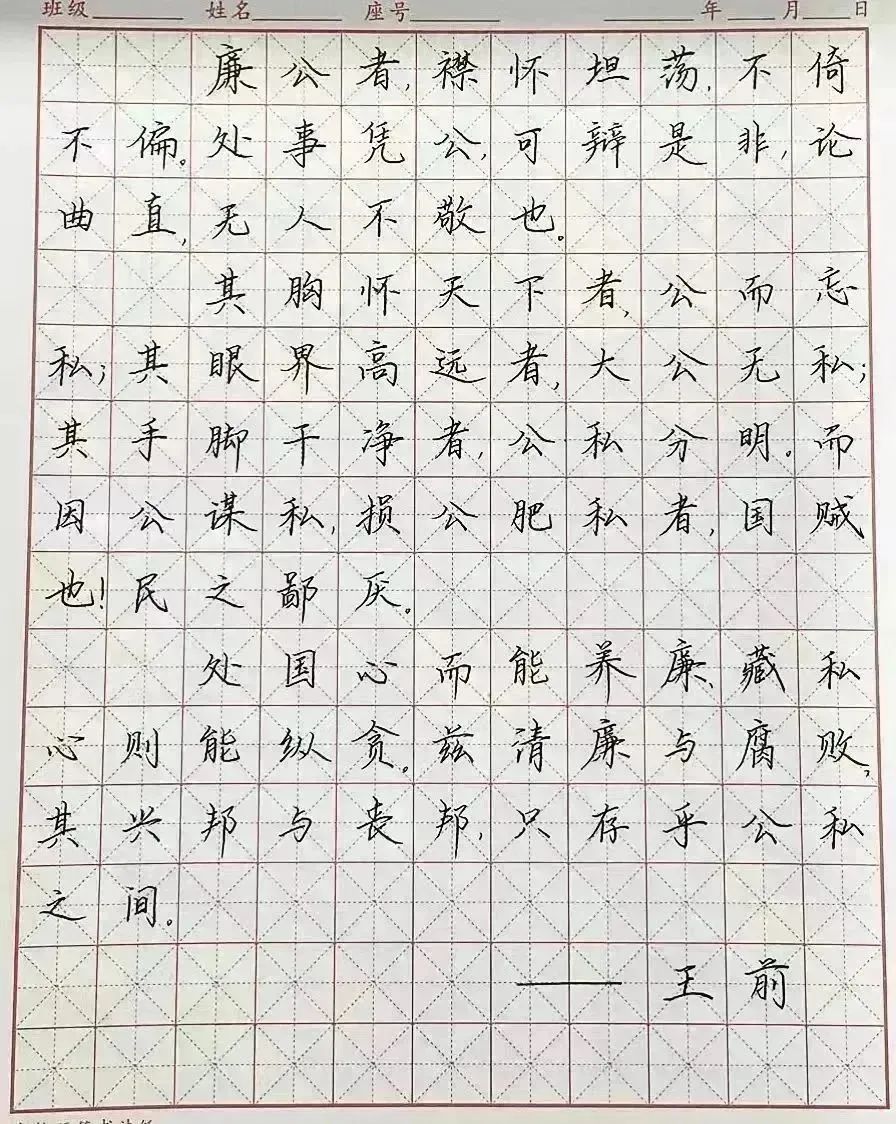 班级 姓名 座号 年 月 日
廉公者,襟怀坦荡,不倚
不偏。处事凭公,可辩是非,论
曲直,无人不敬也。
其胸怀天下者,公而忘
私;其眼界高远者,大公无私;
其手脚干净者,公私分明。而
因公谋私,损公肥私者,国贼
也!民之鄙厌。
处国心而能养廉、藏私
心则能纵贪。兹清廉与腐败,
其兴邦与丧邦,只存乎公私
之间。
——王前